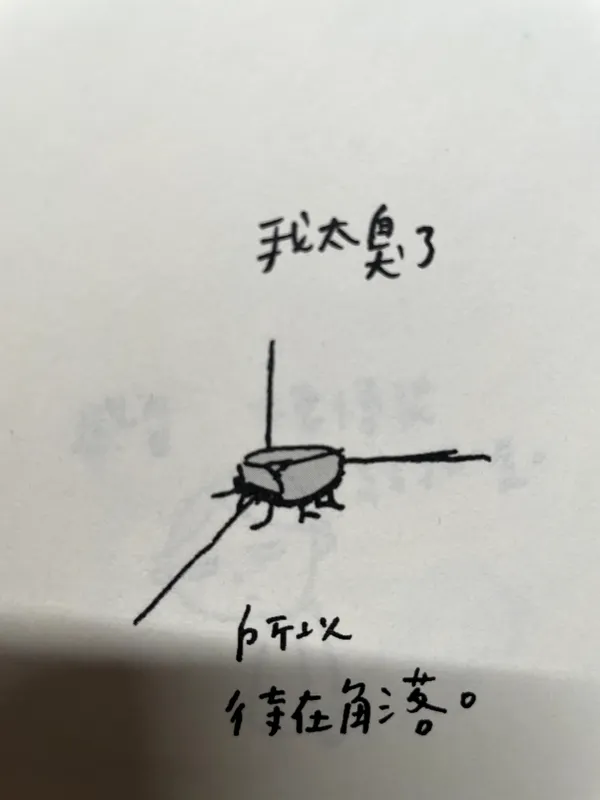 我太臭了
所以
待在角落。